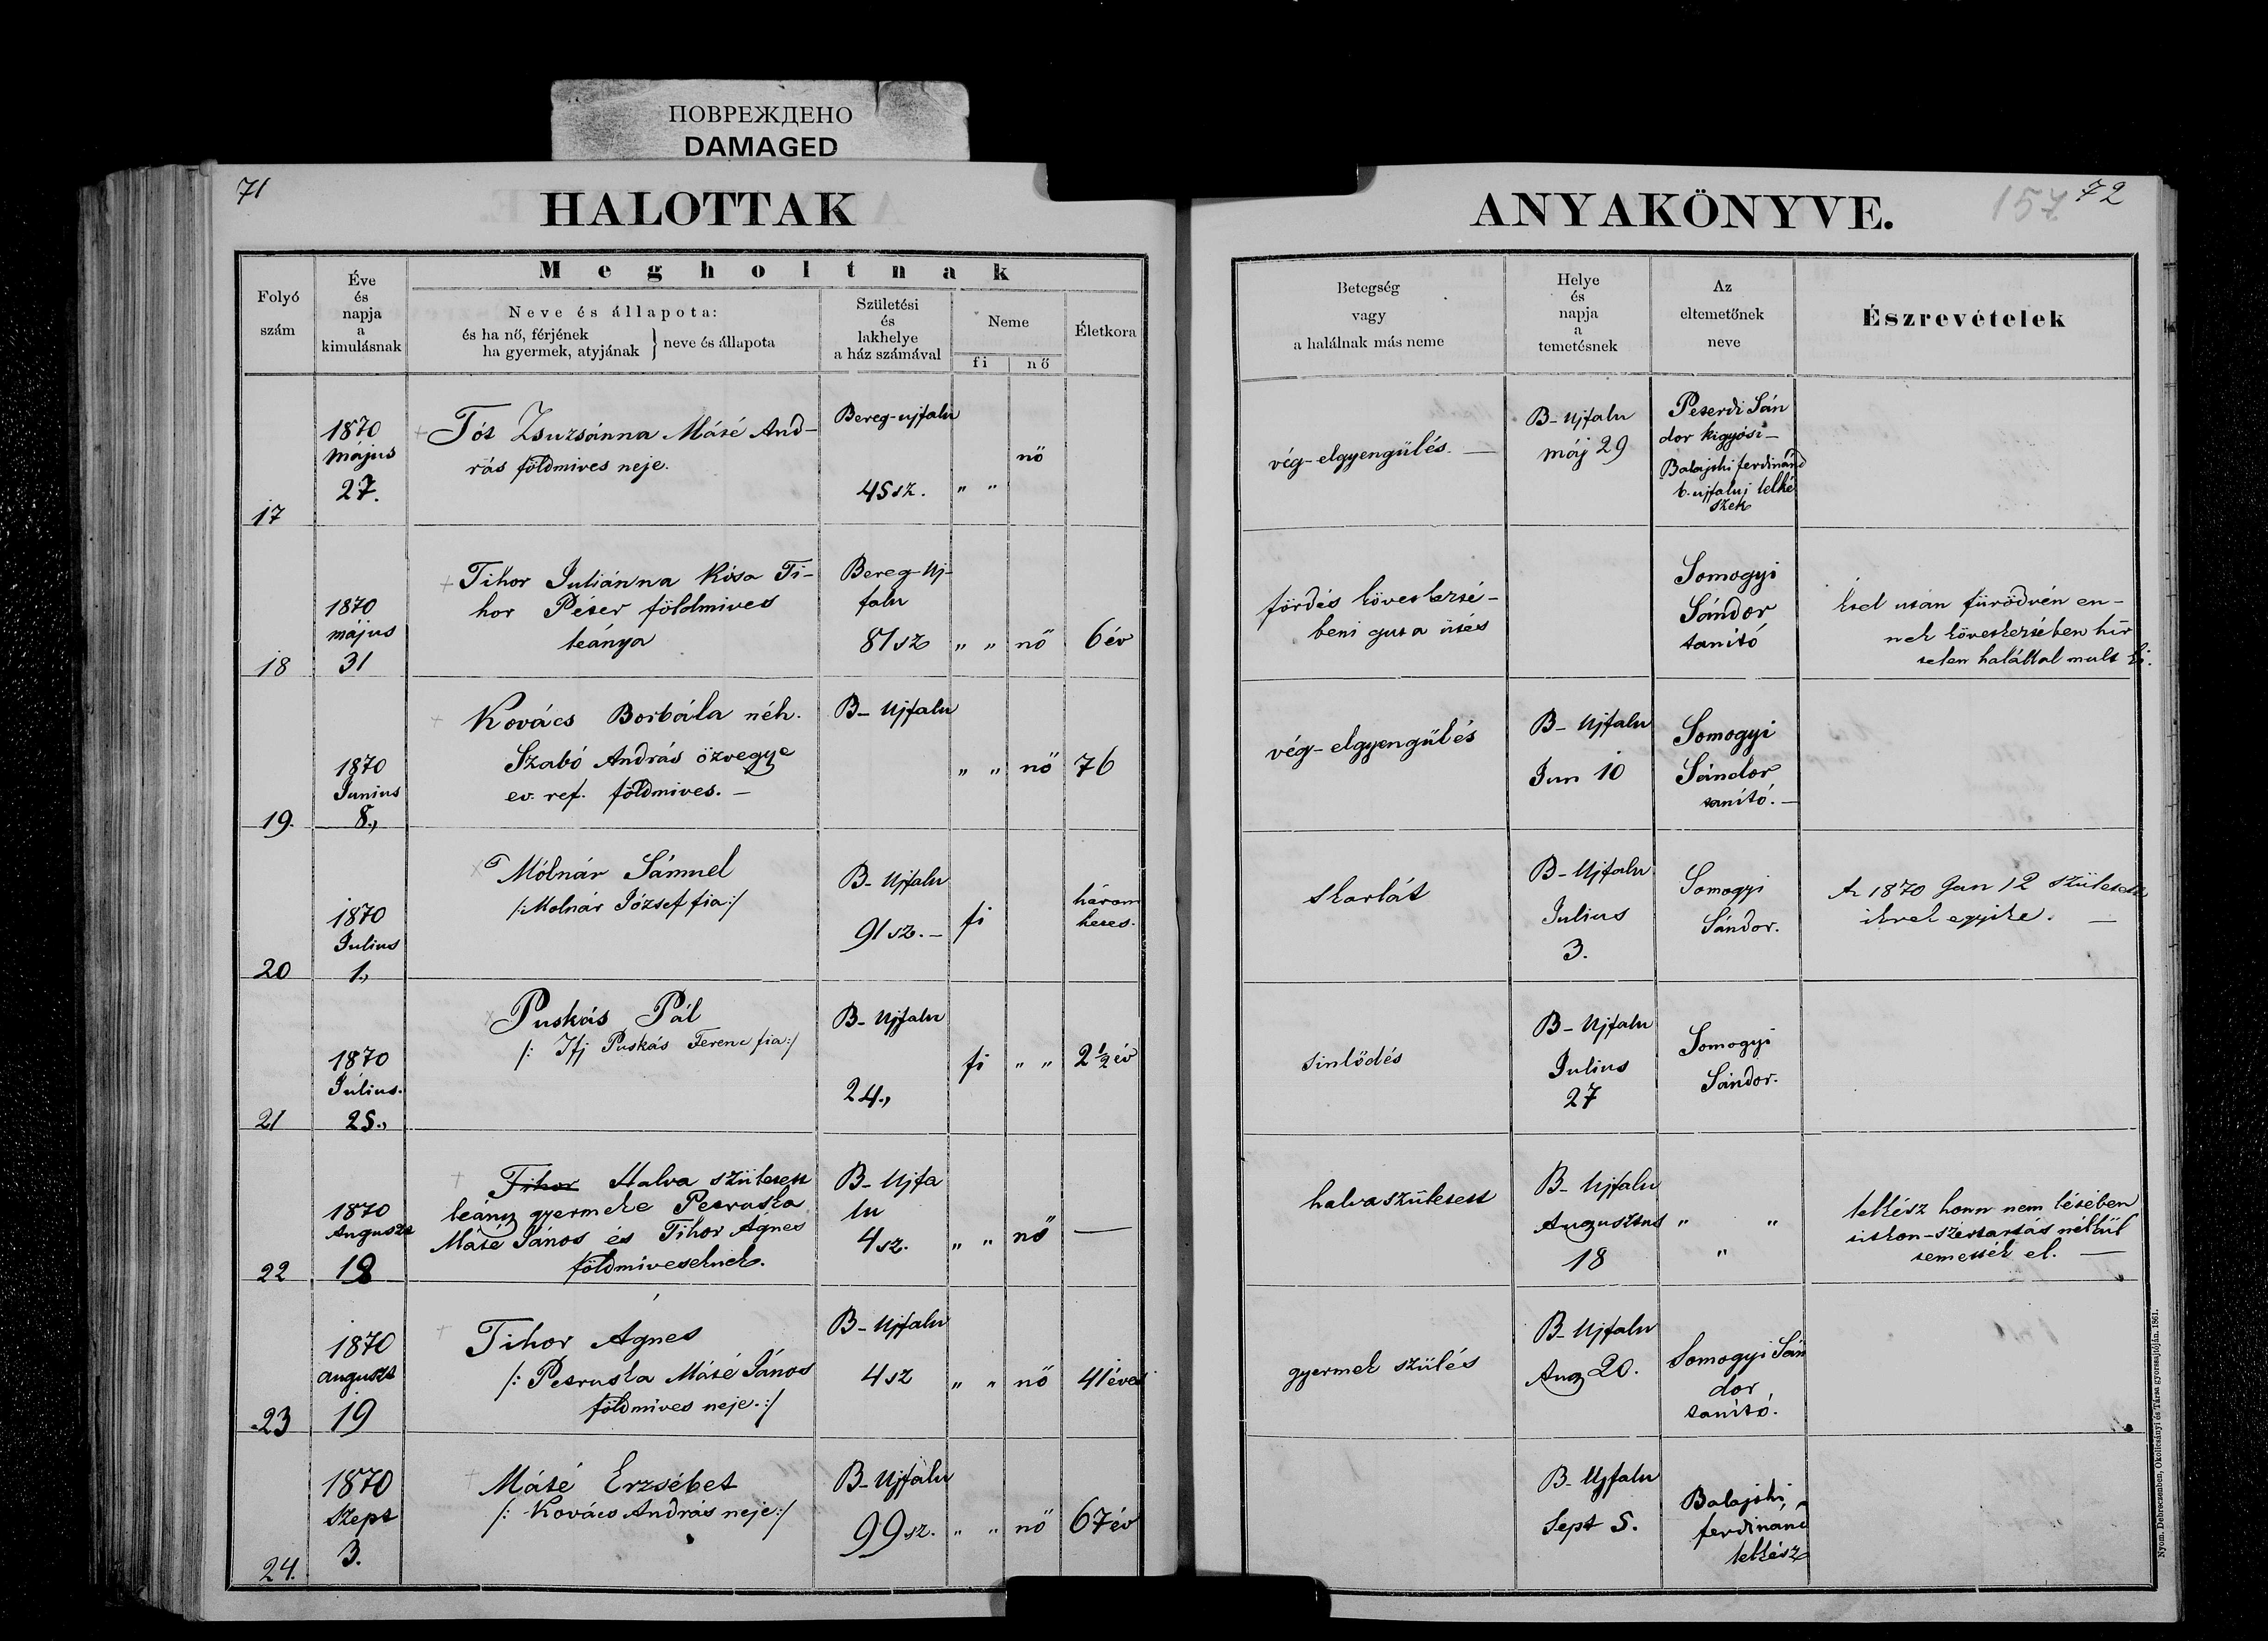 ПОВРЕЖДЕНО
DAMAGED
71
HALOTTAK
Folyó szám
Éve és napja a kimulásnak
Megholtnak
Neve és állapota:
és ha nő, férjének
ha gyermek, atyjának } neve és állapota
Születési és lakhelye a ház számával
Neme
fi
nő
Életkora
17
1870
május
27.
Tót Zsuzsánna Máté And-
rás földmives neje.
Bereg-ujfalu
45 sz.
" "
nő
18
1870
május
31
Tihor Juliánna Kósa Ti-
hor Péter földmives
leánya
Bereg-Uj-
falu
81 sz
" "
nő
6 év
19.
1870
Junius
8.,
Kovács Borbála néh.
Szabó András özvegye
ev. ref. földmives. –
B- Ujfalu
" "
nő
76
20
1870
Julius
1.,
Mólnár Sámuel
/: Molnár József fia :/
B- Ujfalu
91 sz. –
fi
három
hetes.
21
1870
Július.
25.,
Puskás Pál
/: Ifj Puskás Ferenc fia :/
B- Ujfalu
24.,
fi
" "
2 1/2 év
22
1870
Auguszt
18
Tihor Halva született
leány gyermeke Petruska
Máté János és Tihor Ágnes
földmiveseknek.
B- Ujfa
lu
4 sz.
" "
nő
—
23
1870
auguszt
19
Tihor Ágnes
/: Petruska Máté János
földmives neje. :/
B- Ujfalu
4 sz
" "
nő
41 éves
24.
1870
Szept
3.
Máté Erzsébet
/: Kovács András neje :/
B- Ujfalu
99 sz.
" "
nő
67 év
157 72
ANYAKÖNYVE.
Betegség vagy a halálnak más neme
Helye és napja a temetésnek
Az eltemetőnek neve
Észrevételek
vég-elgyengülés. —
B- Ujfalu
máj 29
Peterdi Sán
dor kigyósi –
Balajthi ferdinánd
b. ujfalui lelké
szek
fördés következté-
beni guta ütés
Somogyi
Sándor
tanító
után fürödvén en-
nek következtében hir
telen halállal mult ki.
vég-elgyengülés
B- Ujfalu
Jun 10
Somogyi
Sándor
tanító. –
skarlát
B- Ujfalu
Julius
3.
Somogyi
Sándor.
Az 1870 Jan 12 született
ikrek egyike. —
sinlődés
B- Ujfalu
Julius
27
Somogyi
Sándor.
halvaszületett
B- Ujfalu
Augusztus
18
" "
"
lelkész honn nem létében
szertartás nélkül
temették el. —
gyermek szülés
B- Ujfalu
Aug 20.
Somogyi Sán
dor
tanító.
B- Ujfalu
Sept 5.
Balajthi
ferdinánd
lelkész
Nyom. Debreczenben, Okolicsányi és Társa gyorssajtóján. 1861.